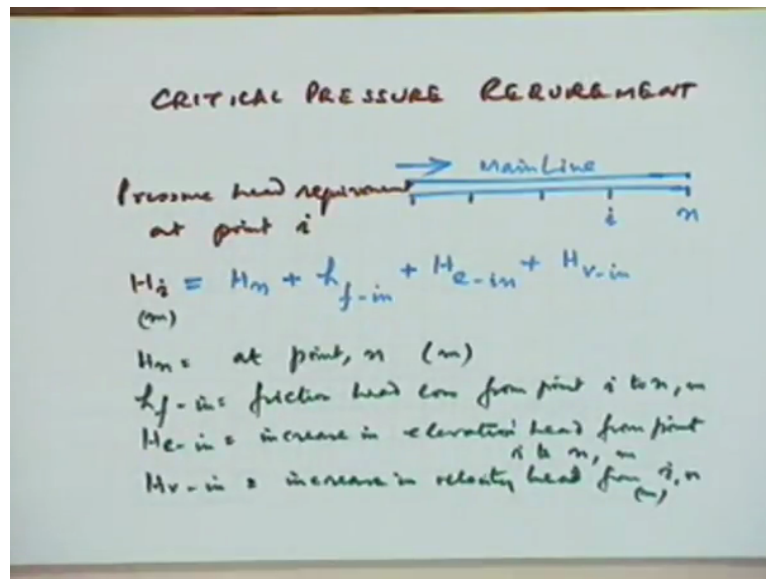 CRITICAL PRESSURE REQUREMENT
Main Line
Pressure head requirement
at point i
i n
Hi = Hn + hf-in + He-in + Hv-in
(m)
Hn = at point, n (m)
hf-in = friction head loss from point i to n, m
He-in = increase in elevation head from point
i to n, m
Hv-in = increase in velocity head from i, n
(m)